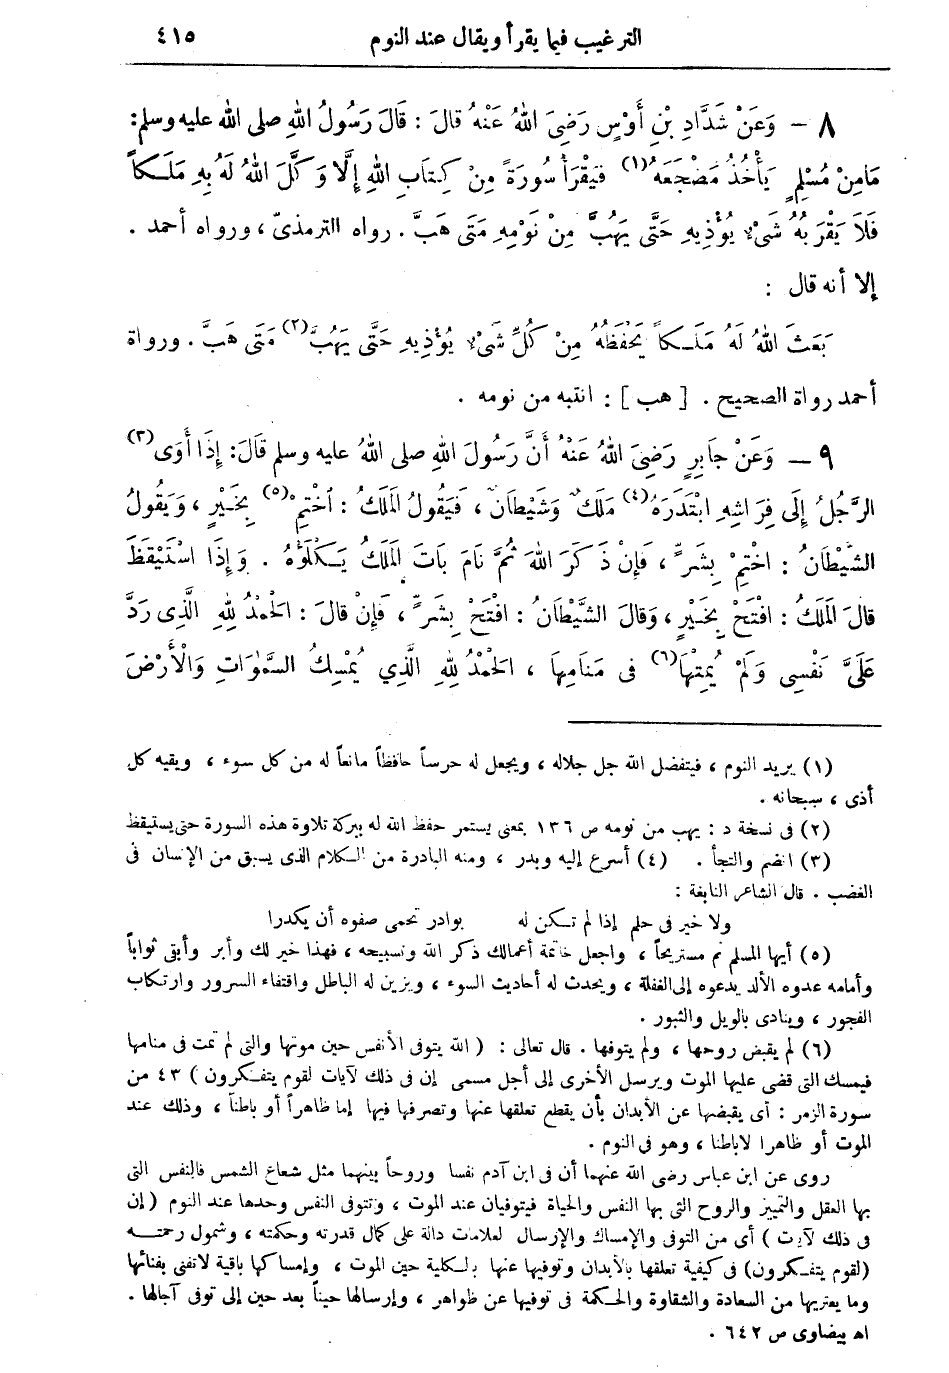 الترغيب فيما يقرأ ويقال عند النوم ٤١٥
٨ – وَعَنْ شَدَّادِ بْنِ أَوْسٍ رَضِىَ اللهُ عَنْهُ قالَ : قَالَ رَسُولُ اللهِ صلى الله عليه وسلم:
مَامِنْ مُسْلِمٍ يَأْخُذُ مَضْجَعَهُ(١) فَيَقْرَأُ سُورَةً مِنْ كِتَابِ اللهِ إِلَّا وَكَّلَ اللهُ لَهُ بِهِ مَلَكاً
فَلاَ يَقْرَبُهُ شَىْءٌ يُؤْذِيهِ حَتَّى يَهُبَّ مِنْ نَوْمِهِ مَتَى هَبَّ . رواه الترمذىّ ، ورواه أحمد .
إلا أنه قال :
بَعَثَ اللهُ لَهُ مَلَكاً يَحْفَظُهُ مِنْ كُلِّ شَىْءٍ يُؤْذِيهِ حَتَّى يَهُبَّ(٢) مَتَى هَبَّ . ورواة
أحمد رواة الصحيح . [ هب ] : انتبه من نومه .
٩ – وَعَنْ جَابِرٍ رَضِىَ اللهُ عَنْهُ أَنَّ رَسُولَ اللهِ صلى اللهُ عليه وسلم قَالَ: إِذَا أَوَى(٣)
الرَّجُلُ إِلَى فِرَاشِهِ ابْتَدَرَهُ(٤) مَلَكٌ وَشَيْطَانٌ ، فَيَقُولُ المَلَكُ : اُخْتِمْ(٥) بِخَيْرٍ ، وَيَقُولُ
الشَّيْطَانُ : اخْتِمْ بِشَرٍّ ، فَإِنْ ذَكَرَ اللهَ ثُمَّ نَامَ بَاتَ المَلَكُ يَكْلَؤُهُ . وَإِذَا اسْتَيْقَظَ
قالَ المَلَكُ : افْتَحْ بِخَيْرٍ ، وَقَالَ الشَّيْطَانُ : افْتَحْ بِشَرٍّ ، فَإِنْ قالَ : الحَمْدُ لِلهِ الَّذِى رَدَّ
عَلَىَّ نَفْسِى وَلَمْ يُمِتْهَا(٦) فى مَنَامِهَا ، الحَمْدُ لِلهِ الَّذِي يُمْسِكُ السَّمٰوَاتِ وَالْأَرْضَ
(١) يريد النوم ، فيتفضل الله جل جلاله ، ويجعل له حرساً حافظاً مانعاً له من كل سوء ، ويقيه كل
أذى ، سبحانه .
(٢) فى نسخة د : يهب من نومه ص ١٣٦ بمعنى يستمر حفظ الله له ببركة تلاوة هذه السورة حتى يستيقظ
(٣) انضم والتجأ . (٤) أسرع إليه وبدر ، ومنه البادرة من الكلام الذى يسبق من الإنسان فى
الغضب . قال الشاعر النابغة :
ولا خير فى حلم إذا لم تكن له بوادر تحمى صفوه أن يكدرا
(٥) أيها المسلم نم مستريحاً ، واجعل خاتمة أعمالك ذكر الله وتسبيحه ، فهذا خير لك وأبر وأبقى ثواباً
وأمامه عدوه الألد يدعوه إلى الغفلة ، ويحدث له أحاديث السوء ، ويزين له الباطل واقتفاء السرور وارتكاب
الفجور ، وينادى بالويل والثبور .
(٦) لم يقبض روحها ، ولم يتوفها . قال تعالى : ( الله يتوفى الأنفس حين موتها والتى لم تمت فى منامها
فيمسك التى قضى عليها الموت ويرسل الأخرى إلى أجل مسمى إن فى ذلك لآيات لقوم يتفكرون ) ٤٣ من
سورة الزمر : أى يقبضها عن الأبدان بأن يقطع تعلقها عنها وتصرفها فيها إما ظاهراً أو باطناً ، وذلك عند
الموت أو ظاهرا لاباطنا ، وهو فى النوم .
روى عن ابن عباس رضى الله عنهما أن فى ابن آدم نفسا وروحاً بينهما مثل شعاع الشمس فالنفس التى
بها العقل والتمييز والروح التى بها النفس والحياة فيتوفيان عند الموت ، وتتوفى النفس وحدها عند النوم ( إن
فى ذلك لآيت ) أى من التوفى والإمساك والإرسال لعلامات دالة على كمال قدرته وحكمته ، وشمول رحمته
(لقوم يتفكرون) فى كيفية تعلقها بالأبدان وتوفيها عنها بالكلية حين الموت ، وإمساكها باقية لاتفنى بفنائها
وما يعتريها من السعادة والشقاوة والحكمة فى توفيها عن ظواهر ، وإرسالها حيناً بعد حين إلى توفى آجالها .
اه بيضاوى ص ٦٤٢ .